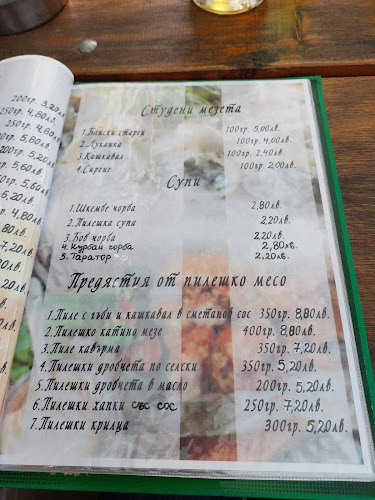 200гр. 3,20лв.
250гр. 4,80лв.
250гр. 4,80лв.
250гр. 5,80лв.
200гр. 5,20лв.
250гр. 5,60лв.
250гр. 5,60лв.
5,20лв.
8,80лв.
7,20лв.
5,20лв.
Студени мезета
1.Бански старец 100гр. 5,00лв.
2.Луканка 100гр. 4,00лв.
3.Кашкавал 100гр. 2,40лв.
4.Сирене 100гр. 2,00лв.
Супи
1.Шкембе чорба 2,80лв.
2.Пилешка супа 2,20лв.
3.Боб чорба 2,20лв.
4.Курбан чорба 2,80лв.
5.Таратор 2,20лв.
Предястия от пилешко месо
1.Пиле с гъби и кашкавал в сметанов сос 350гр. 8,80лв.
2.Пилешко катино мезе 400гр. 8,80лв.
3.Пиле кавърма 350гр. 7,20лв.
4.Пилешки дробчета по селски 350гр. 5,20лв.
5.Пилешки дробчета в масло 200гр. 5,20лв.
6.Пилешки хапки със сос 250гр. 7,20лв.
7.Пилешки крилца 300гр. 5,20лв.